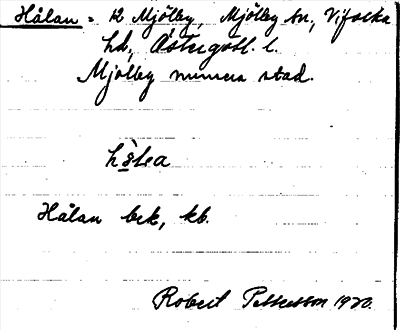 Hålan = 12 Mjölby, Mjölby sn, Vifolka
hd, Östergötl. l.
Mjölby numera stad.
Hålan bek, kb.
Robert Pettersson 1920.